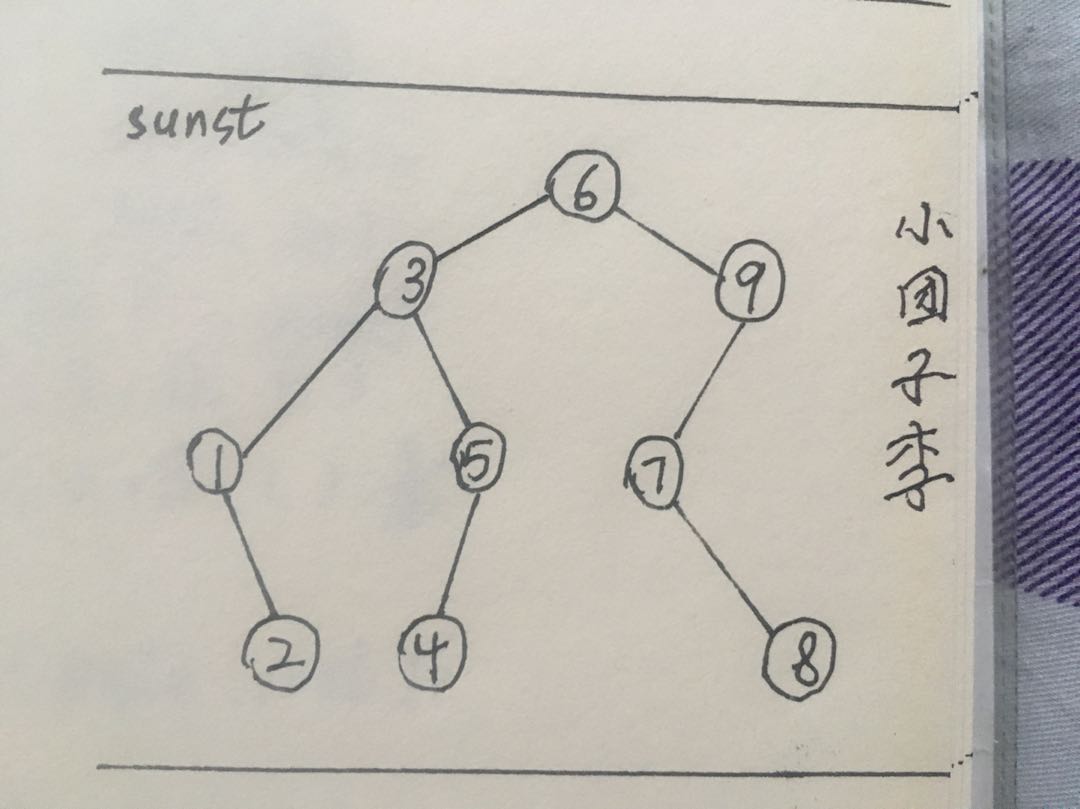 sunst
6
3 9
1 5 7
2 4 8
小团子李